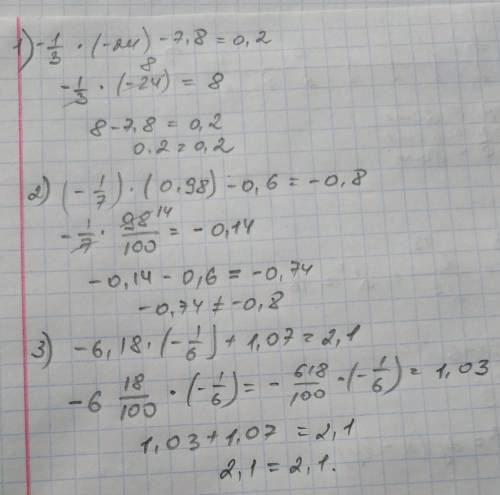 1) -1/3 · (-24) - 7,8 = 0,2
8
-1/3 · (-24) = 8
8 - 7,8 = 0,2
0.2 = 0,2
2) (-1/7) · (0,98) - 0,6 = -0,8
-1/7 · 98 14/100 = -0,14
-0,14 - 0,6 = -0,74
-0,74 ≠ -0,8
3) -6,18 · (-1/6) + 1,07 = 2,1
-6 18/100 · (-1/6) = -618/100 · (-1/6) = 1,03
1,03 + 1,07 = 2,1
2,1 = 2,1.